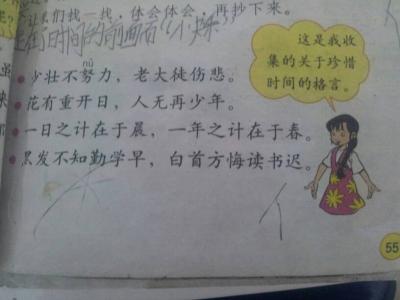 我们找一找，体会体会，再抄下来。
这是我收
集的关于珍惜
时间的格言。
nǔ
少壮不努力，老大徒伤悲。
花有重开日，人无再少年。
一日之计在于晨，一年之计在于春。
黑发不知勤学早，白首方悔读书迟。
55